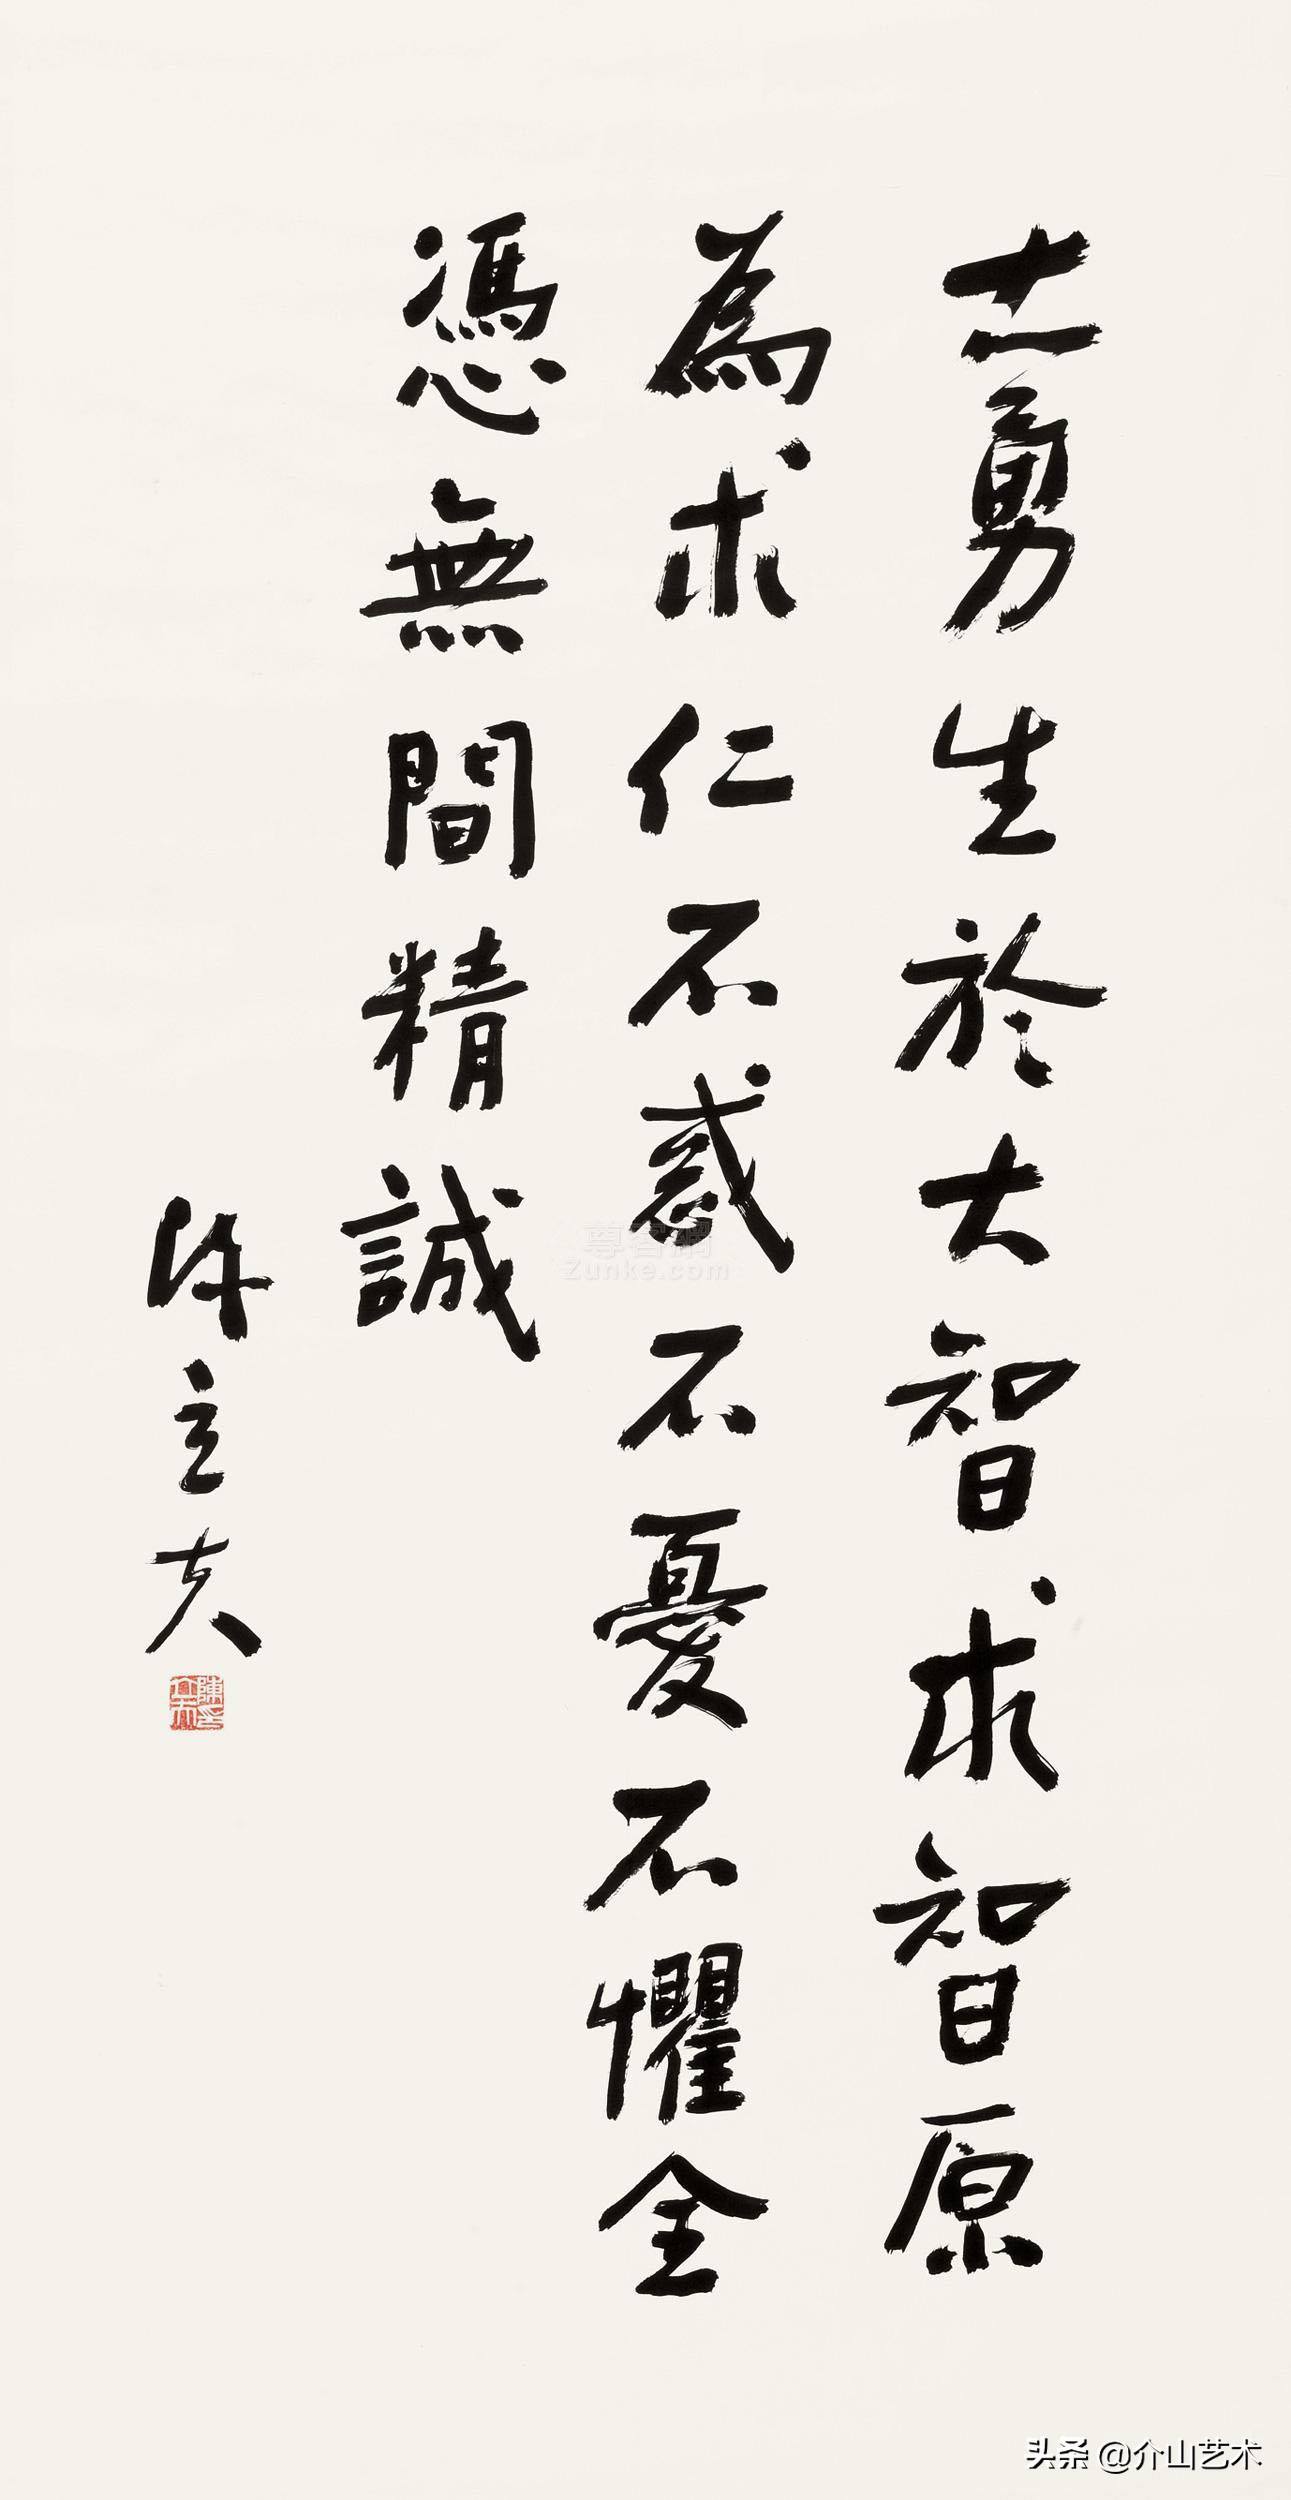 大勇生於大智求智原
為求仁不惑不憂不懼全
憑無間精誠
陳立夫
陳印立夫
尊客網
Zunke.com
头条 @介山艺术